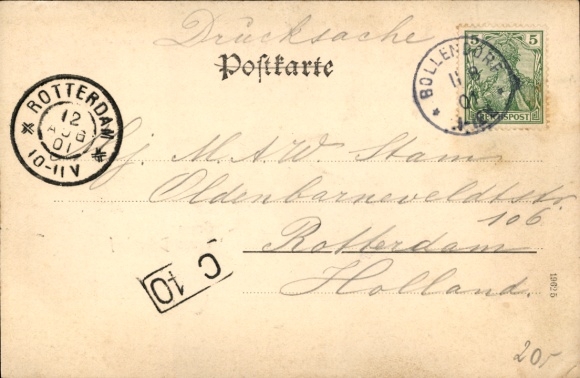 Drucksache
Postkarte
5
REICHSPOST
* BOLLENDORF *
11 8
01
* ROTTERDAM *
12
AUG
01
10-11V
M. A. W. Stam
Oldenbarneveldtstr.
106
Rotterdam
Holland.
C 10
1962 5
20,-